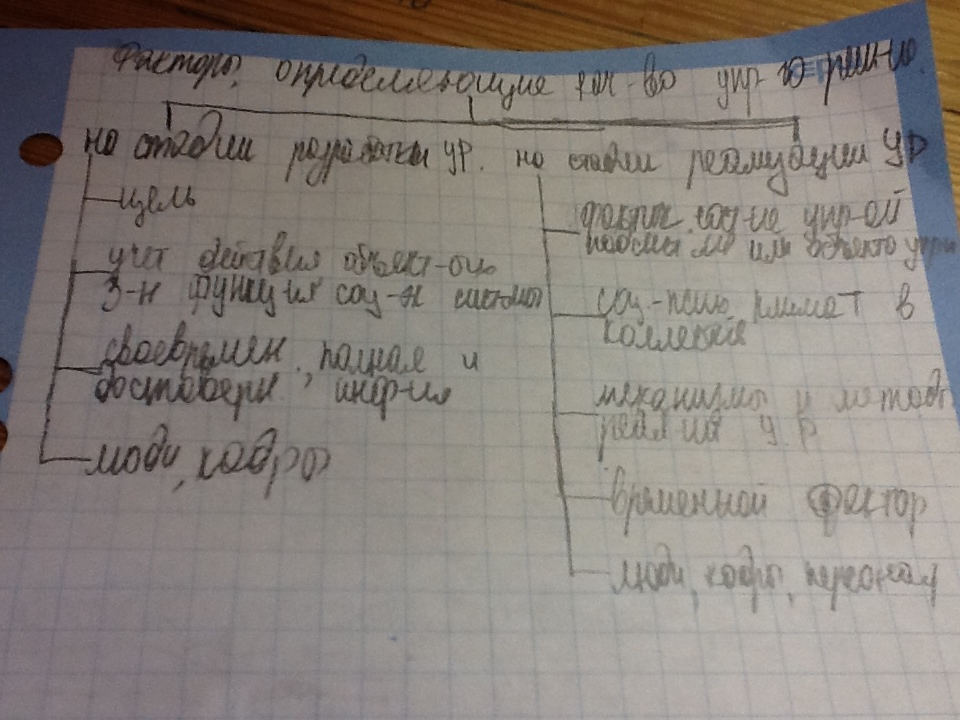 Факторы, определяющие кач-во упр-го реш-ия.
на стадии разработки УР.
цель
учет действия объект-ого
З-н функция соц-й системы
своевремен., полная и
достоверн. инф-ия
люди, кадры
на стадии реализации УР
фактич. сос-ие упр-ой
или объекта упр
соц-псих. климат в
коллективе
механизмы и методы
реал-ии У.Р
временной фактор
люди, кадры, персонал